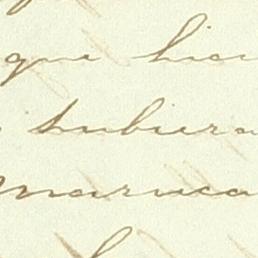 que hici
subiera
maruca